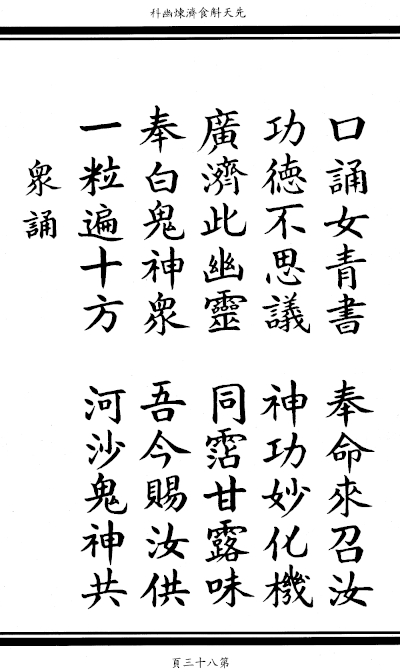 先天斛食濟煉幽科
口誦女青書　奉命來召汝
功德不思議　神功妙化機
廣濟此幽靈　同霑甘露味
奉白鬼神衆　吾今賜汝供
一粒遍十方　河沙鬼神共
衆誦
第八十三頁